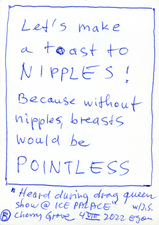 Let's make
a toast to
NIPPLES!
Because without
nipples, breasts
would be
POINTLESS
* Heard during drag queen
show @ ICE PALACE w/J.S.
Cherry Grove 4 VIII 2022